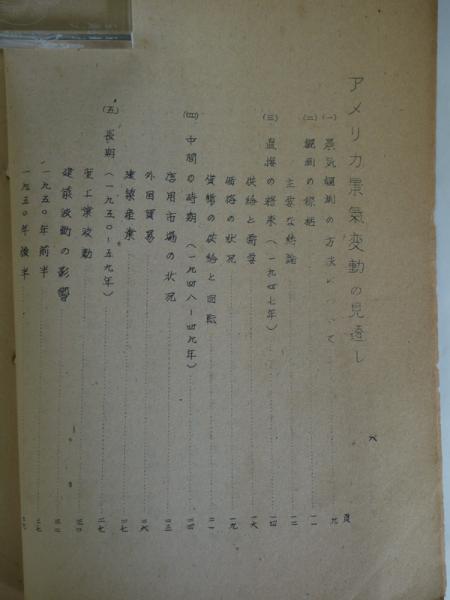 アメリカ景氣変動の見透し
頁
(一) 景気観測の方法について 九
(二) 観測の標柄 一一
主要な結論 一二
(三) 直接の将来(一九四七年) 一四
供給と需要 一六
価格の状況 一九
貨幣の供給と回転 二一
(四) 中間の時期(一九四八―四九年)
信用市場の状況
外国貿易 二六
建築産業 二七
(五) 長期(一九五〇―五九年) 二七
重工業波動
建築波動の影響
一九五〇年前半
一九五〇年後半